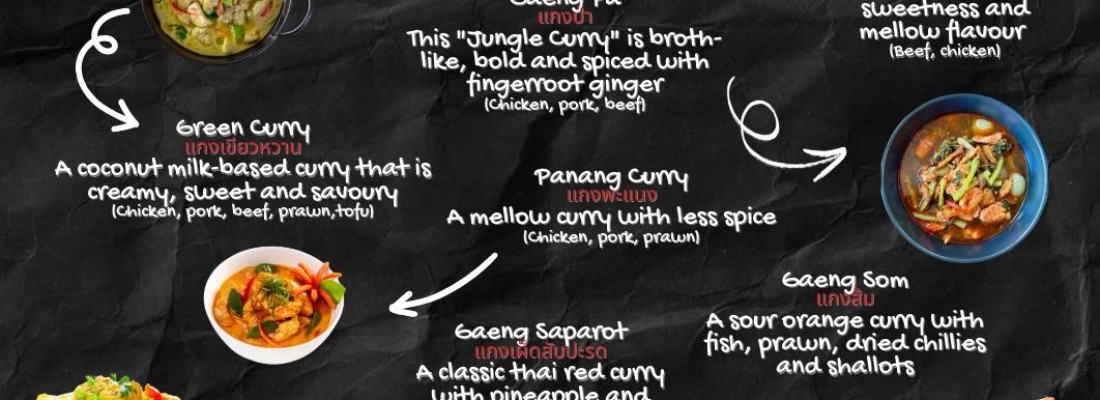 Gaeng Pa
แกงป่า
This "Jungle Curry" is broth-
like, bold and spiced with
fingerroot ginger
(Chicken, pork, beef)
sweetness and
mellow flavour
(Beef, chicken)
Green Curry
แกงเขียวหวาน
A coconut milk-based curry that is
creamy, sweet and savoury
(Chicken, pork, beef, prawn,tofu)
Panang Curry
แกงพะแนง
A mellow curry with less spice
(Chicken, pork, prawn)
Gaeng Som
แกงส้ม
A sour orange curry with
fish, prawn, dried chillies
and shallots
Gaeng Saparot
แกงเผ็ดสับปะรด
A classic thai red curry
with pineapple and